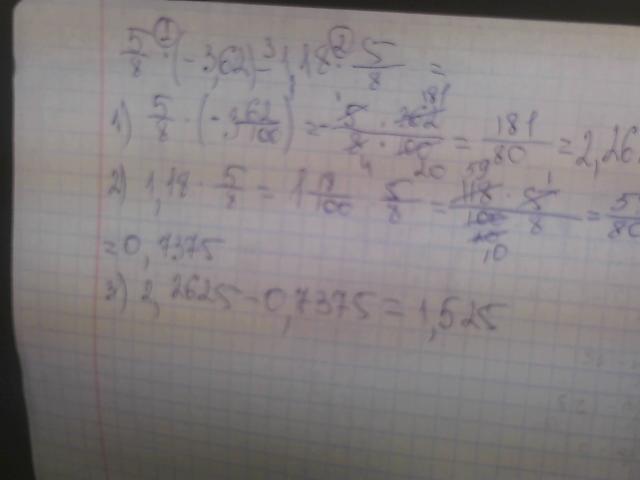 5/8 · (-3,62) - 1,18 · 5/8 =
1) 5/8 · (-3 62/100) = - 5 · 362 / 8 · 100 = 181/80 = 2,262
2) 1,18 · 5/8 = 1 18/100 · 5/8 = 118 · 5 / 100 · 8 = 59/80
= 0,7375
3) 2,2625 - 0,7375 = 1,525